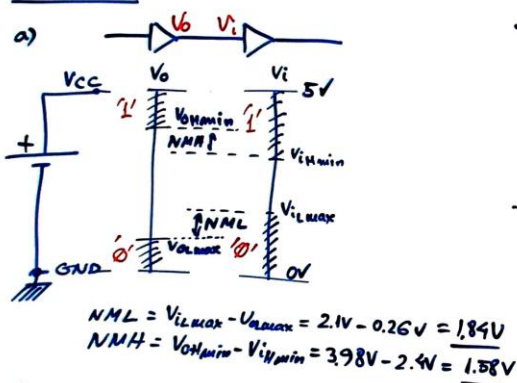 a)
Vo Vi
VCC Vo Vi 5V
'1' VOHmin '1'
NMH
ViHmin
NML ViLmax
'0' VOLmax '0'
GND 0V
NML = ViLmax - VOLmax = 2.1V - 0.26V = 1.84V
NMH = VOHmin - ViHmin = 3.98V - 2.4V = 1.58V